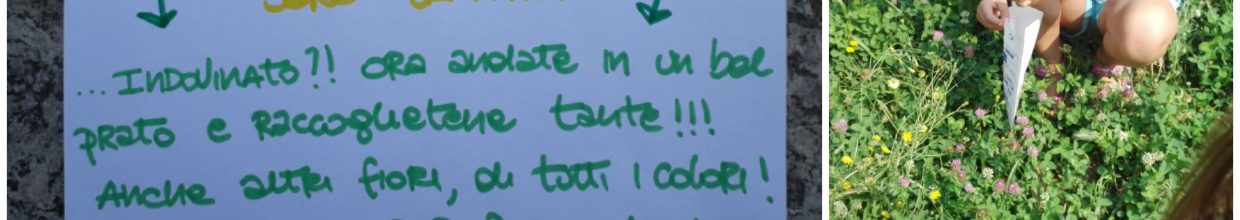 ...INDOVINATO?! ORA andate in un bel
prato e RACCOGLIETENE tante!!!
Anche altri fiori, di tutti i colori!